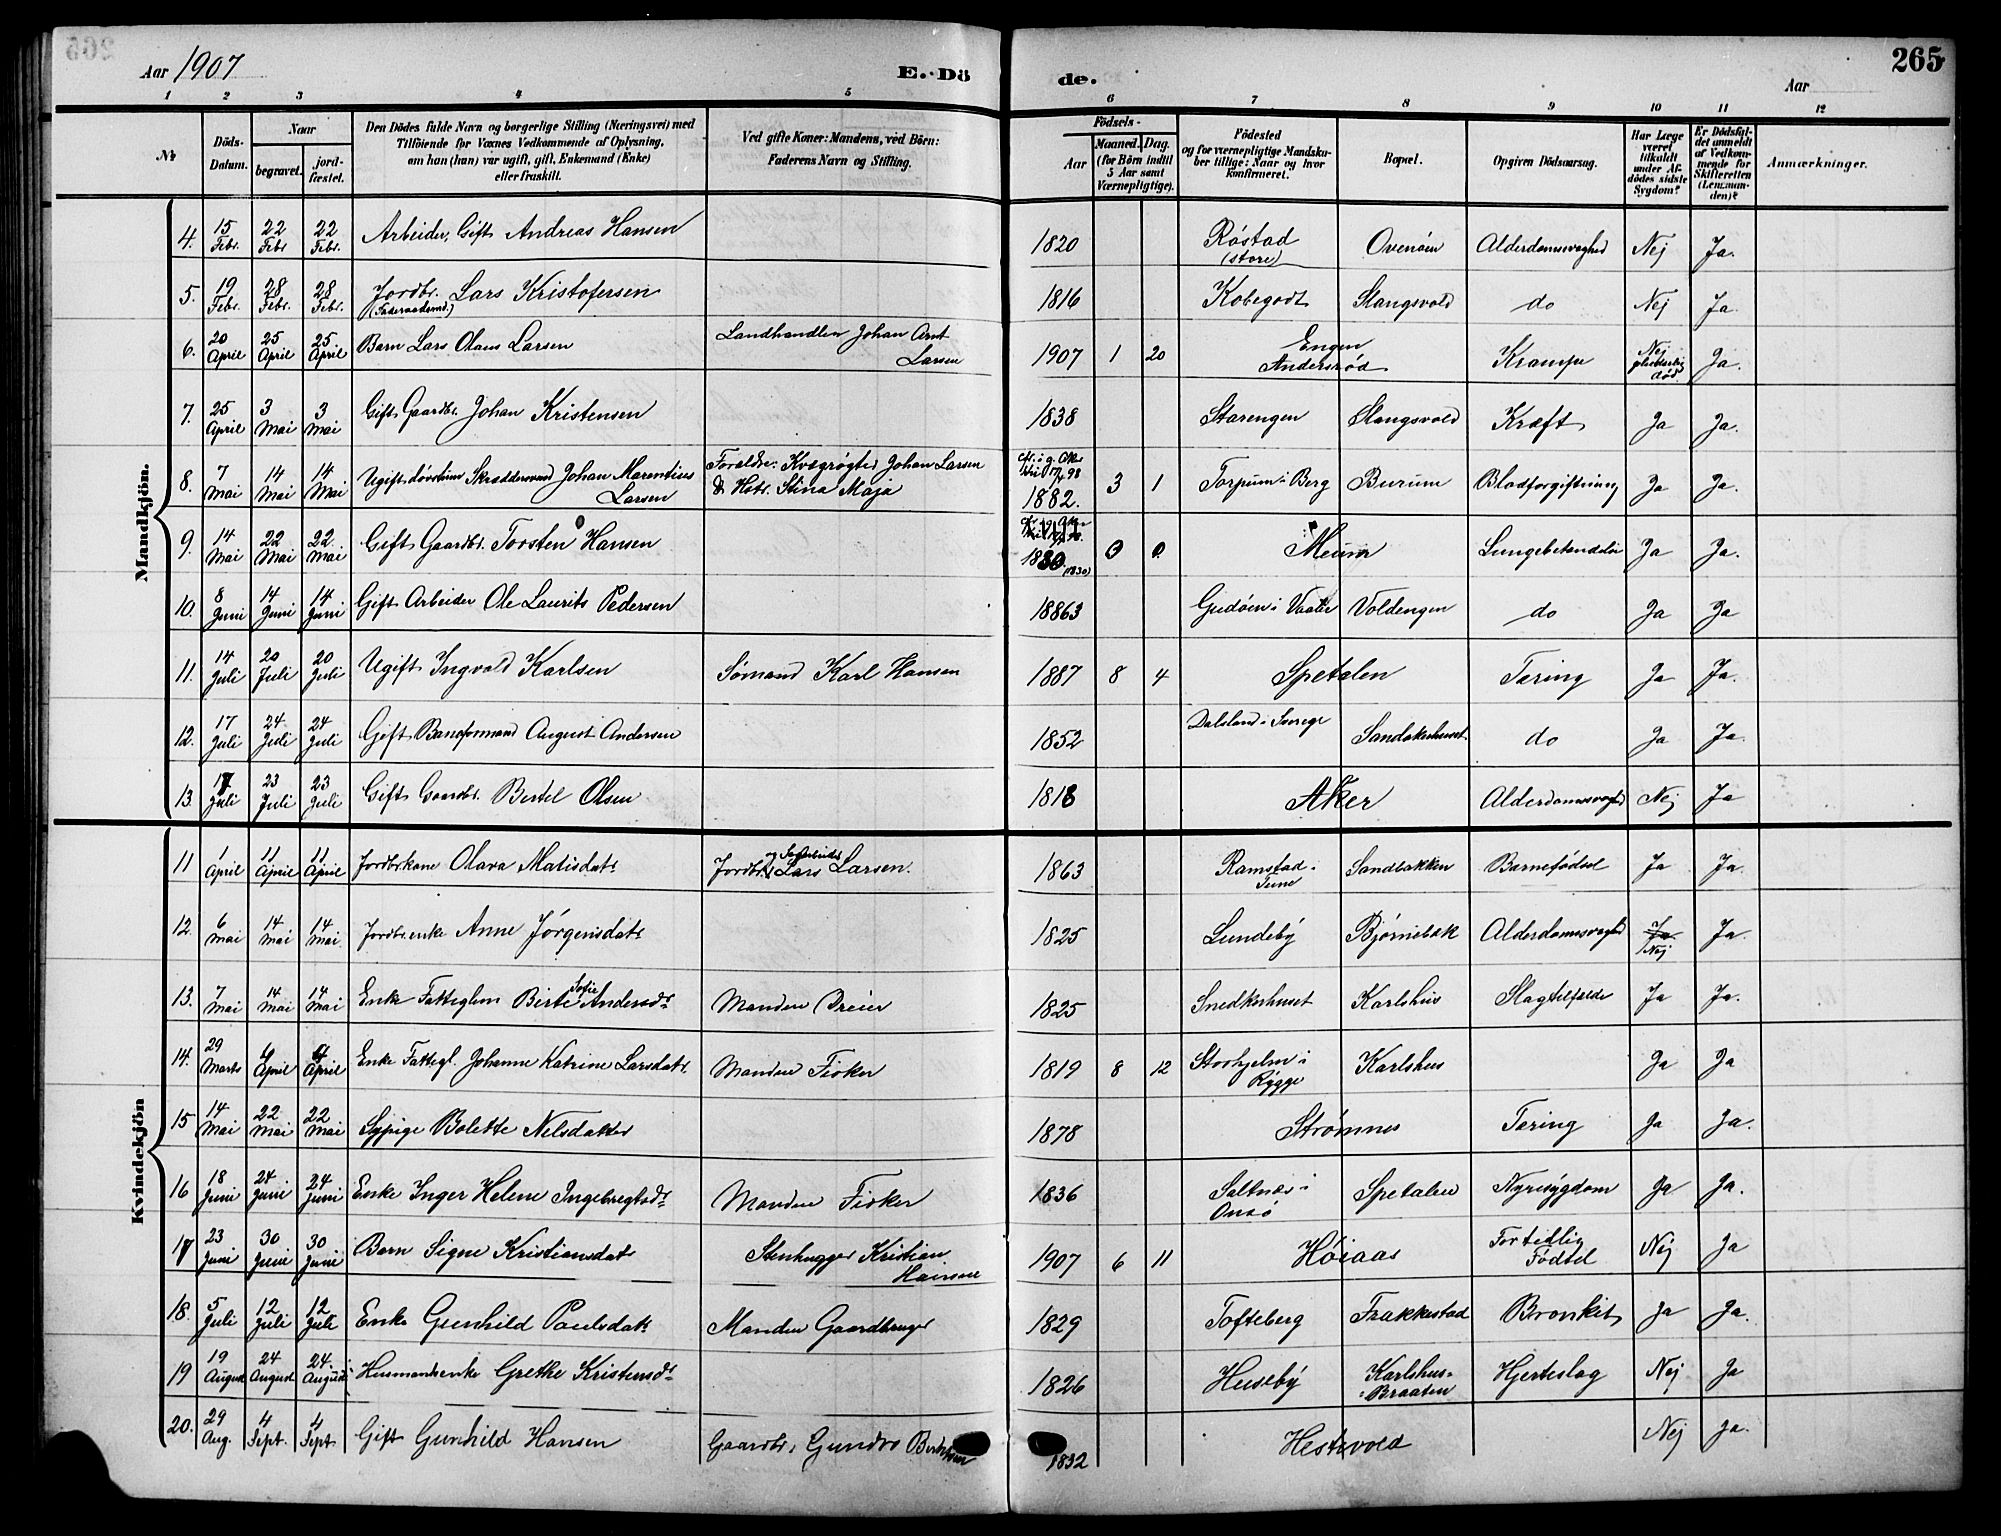 Aar 1907
E. Dö
de.
Aar
265
1 2 3 4 5 6 7 8 9 10 11 12
No
Döds-Datum.
Naar
begravet.
jord-fæstet.
Den Dödes fulde Navn og borgerlige Stilling (Næringsvei) med
Tilföiende for Voxnes Vedkommende af Oplysning,
om han (hun) var ugift, gift, Enkemand (Enke)
eller fraskilt.
Ved gifte Koner: Mandens, ved Börn:
Faderens Navn og Stilling.
Födsels-
Aar
Maaned. Dag.
(for Börn indtil
5 Aar samt
Værnepligtige).
Födested
og for værnepligtige Mandska-
ber tillige: Naar og hvor
konfirmeret.
Bopæl.
Opgiven Dödsaarsag.
Har Læge
været
tilkaldt
under Af-
dödes sidste
Sygdom?
Er Dödsfal-
det anmeldt
af Vedkom-
mende for
Skifteretten
(Lensman-
den)?
Anmærkninger.
Mandkjön.
4. 15 Febr. 22 Febr 22 Febr. Arbeider, Gift Andreas Hansen 1820 Røstad (store) Ovenøen Alderdomssvaghed Nej Ja.
5. 19 Febr. 28 Febr. 28 Febr. Jordbr. Lars Kristofersen (Føderaadsmd.) 1816 Kobegodt Slangsvold do Nej Ja.
6. 20 April 25 April 25 April Barn Lars Olaus Larsen Landhandler Johan Arnt Larsen 1907 1 20 Engen Andersrød Krampe Nej død Ja.
7. 25 April 3 Mai 3 Mai Gift Gaardbr. Johan Kristensen 1838 Starengen Slangsvold Kræft Ja Ja.
8. 7 Mai 14 Mai 14 Mai Ugift døvstum Skræddersvend Johan Marentius Larsen Forældre: Kvægrøgter Johan Larsen & Hstr. Stina Maja 98 1882. 3 1 Torpum i Berg Burum Blodforgiftning Ja Ja.
9. 14 Mai 22 Mai 22 Mai Gift Gaardbr. Torsten Hansen 1830 (1830) 0 0 Meum Lungebetændelse Ja Ja.
10. 8 Juni 14 Juni 14 Juni Gift Arbeider Ole Laurits Pedersen 18863 Gudøen i Vaaler Voldengen do Ja Ja
11. 14 Juli 20 Juli 20 Juli Ugift Ingvald Karlsen Sømand Karl Hansen 1887 8 4 Spetalen Tæring Ja Ja.
12. 17 Juli 24 Juli 24 Juli Gift Baneformand August Andersen 1852 Dalsland i Sverige Sandakerhuset do Ja Ja.
13. 17 Juli 23 Juli 23 Juli Gift Gaardbr. Bertel Olsen 1818 Aker Alderdomssvaghed Nej Ja
Kvindekjön
11 1 April 11 April 11 April Jordbr.kone Olava Matisdatr Jordbr. og Sagarbeider Lars Larsen. 1863 Ramstad i Tune Sandbakken Barnefødsel Ja Ja.
12. 6 Mai 14 Mai 14 Mai. Jordbr.enke Anne Jørgensdatr 1825 Lundeby Bjørnebæk Alderdomssvaghed Ja Nej Ja.
13. 7 Mai 14 Mai 14 Mai Enke Fattiglem Birte Sofie Andersdr. Manden Dreier 1825 Snedkerhuset Karlshus Slagtilfælde Ja Ja.
14. 29 Marts 4 April 4 April Enke Fattigl. Johanne Katrine Larsdatr. Manden Fisker 1819 8 12 Storhjelm i Rygge Karlshus Ja Ja
15 14 Mai 22 Mai 22 Mai Sypige Bolette Nilsdatter 1878 Strømnes Tæring Ja Ja.
16 18 Juni 24 Juni 24 Juni Enke Inger Helene Ingebregtsdr. Manden Fisker 1836 Saltnæs i Onsø Spetalen Nyresygdom Ja Ja.
17 23 Juni 30 Juni 30 Juni Barn Signe Kristiansdatr Stenhugger Kristian Hansen 1907 6 11 Høiaas Fortidlig Fødsel Nej Ja
18. 5 Juli 12 Juli 12 Juli Enke Gunhild Paulsdatr Manden Gaardbruger 1829 Tofteberg Frakkestad Bronkit Ja Ja.
19 19 August 24 August 24. August Husmandsenke Grethe Kristensdr. 1826 Huseby Karlshus-Braaten Hjerteslag Nej Ja
20. 29 Aug. 4 Sept. 4 Sept. Gift Gunhild Hansen Gaardbr. Gunder 1832 Hestevold Nej Ja.